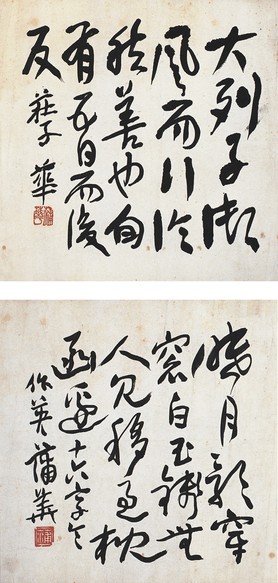 夫列子御
風而行泠
然善也旬
有五日而後
反 莊子 華
眠月影穿
窗白玉錢無
人弄移過枕
函邊十六字令
作英蒲華